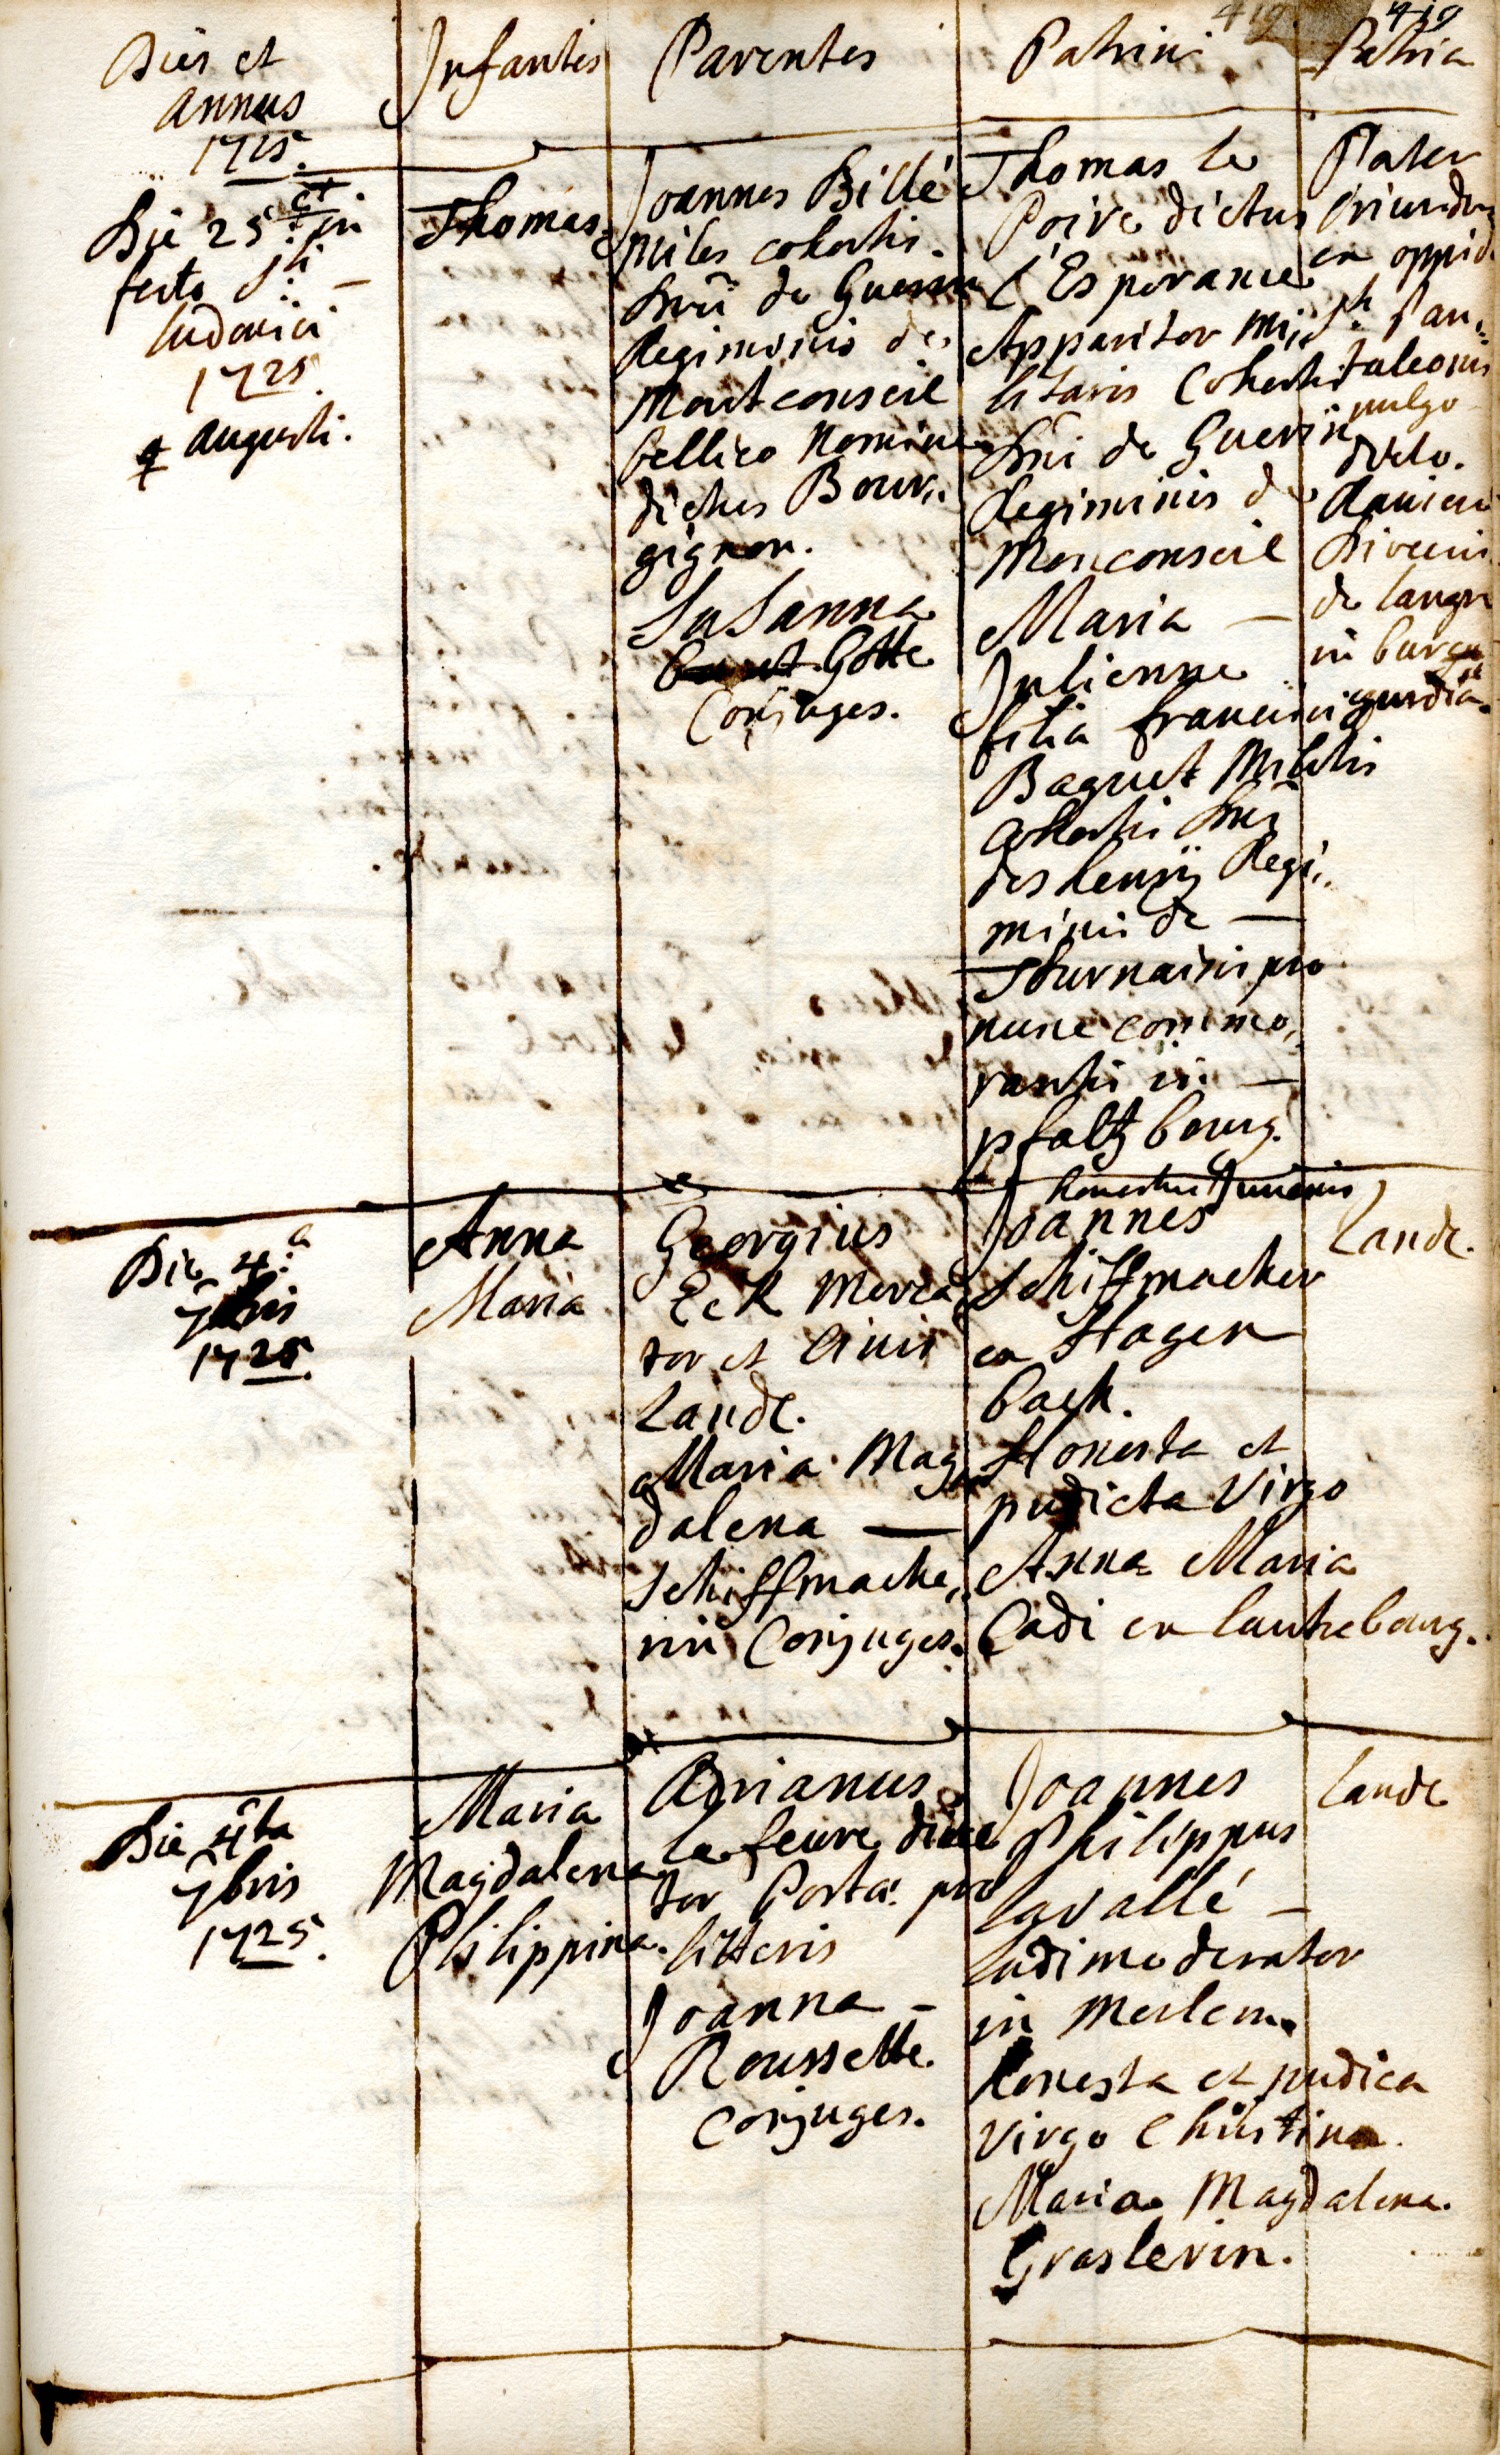 419 419
Dies et
annus
1725.
Infantes
Parentes
Patrini
Patria
Die 25 in
festo Sti
ludovici
1725.
augusti.
Thomas.
Joannes Billé
miles cohortis
Dni de Guerin
Regiminis de
Montconseil
bellico nomine
dictus Bour,,
gignon.
Susanna
Gotte
Conjuges.
Thomas le
Poivre dictus
l'Esperance
Apparitor mi,,
litaris Cohortis
Dni de Guerin
Regiminis de
Monconseil
Maria —
Julienne
filia francisci
Baquet Militis
Cohortis Dni
Regi,,
minis de —
Thurnaisis pro
nunc commo,,
rantis in —
pfaltzbourg.
Pater
oriundus
ex oppido
Sti Pan,,
taleonis
vulgo
dicto.
de langre
in burgu
gundia.
Die 4.a
7bris
1725.
Anna
Maria
Georgius
Eck Merca,,
tor et Civis
Land.
Maria Mag,,
dalena —
Schiffmache,,
rin Conjuges.
honestus Juvenis
Joannes
Schiffmacher
ex Hagen
bach.
Honesta et
pudicta Virgo
Anna Maria
Cadi ex lautrebourg.
Land.
Die 4ta
7bris
1725.
Maria
Magdalena
Philippina.
Adrianus
le feure direc
tor Postae pro
litteris
Joanna —
Roussette.
Conjuges.
Joannes
Philippus
lavallé —
ludimoderator
in Merlem.
honesta et pudica
Virgo Christina
Maria Magdalena.
Graslevin.
Land